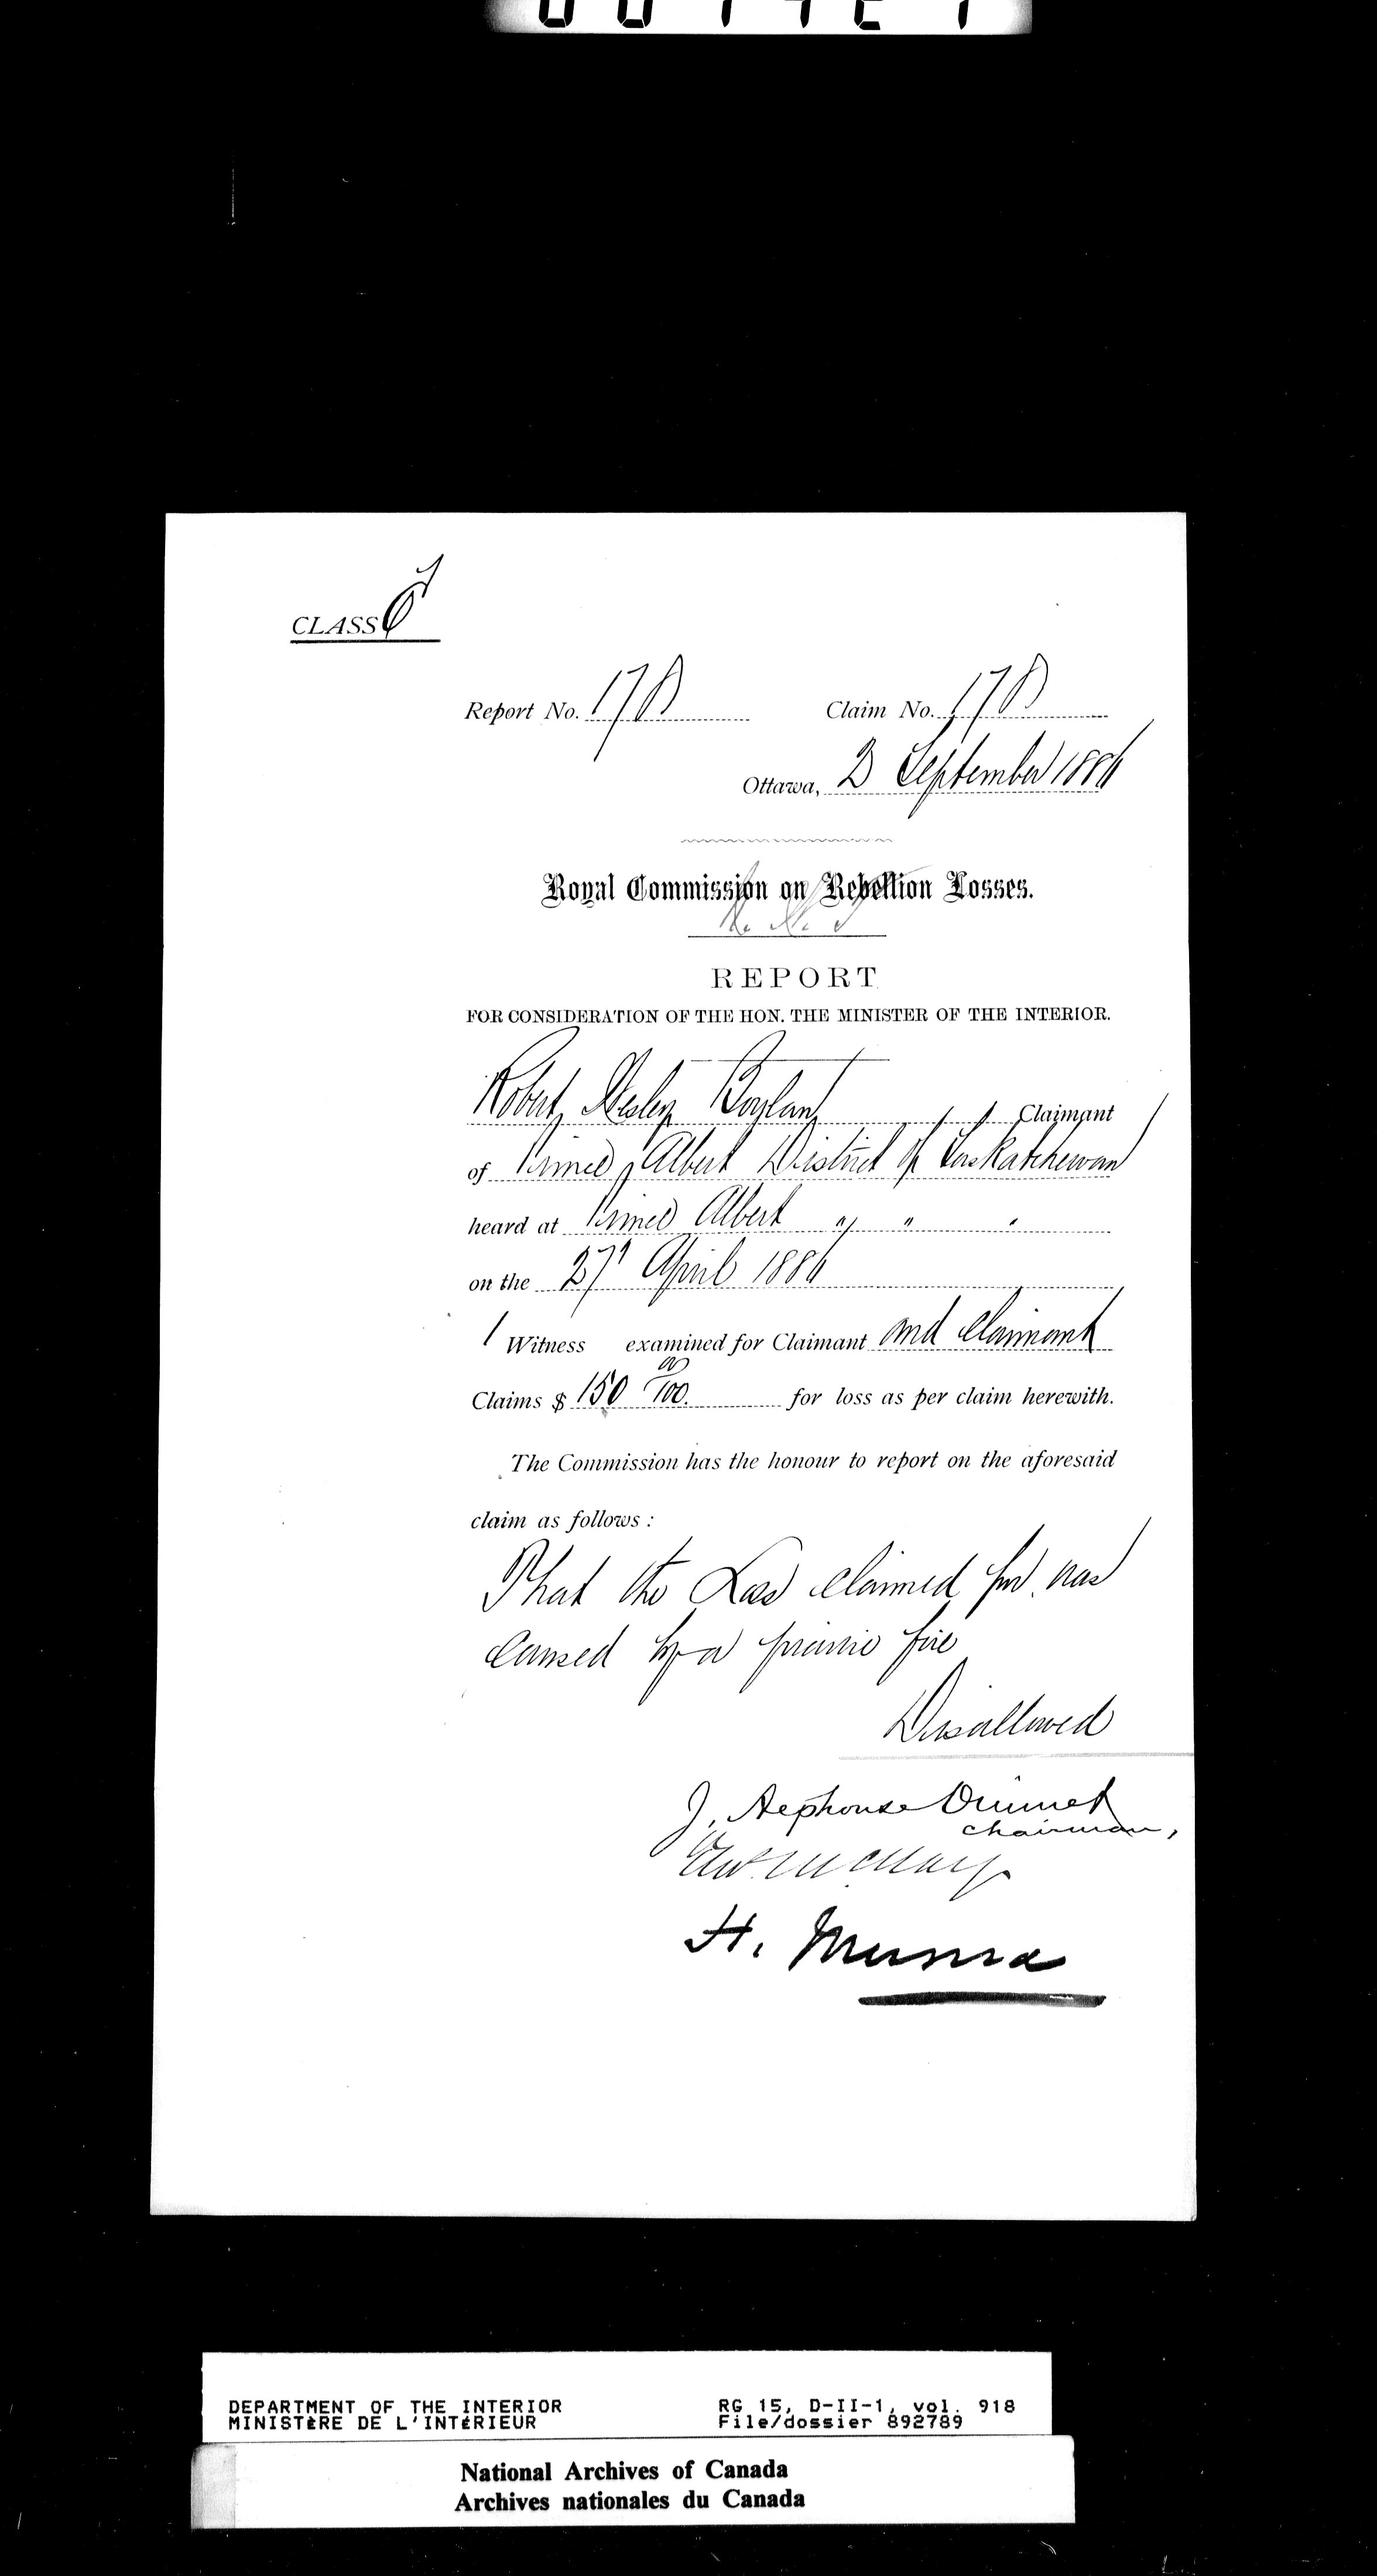 CLASS
Report No. 178 Claim No. 178
Ottawa, 2 September 1886
Royal Commission on Rebellion Losses.
REPORT
FOR CONSIDERATION OF THE HON. THE MINISTER OF THE INTERIOR.
Robert Wesley Boylan Claimant
of Prince Albert District of Saskatchewan
heard at Prince Albert " " "
on the 27 April 1886
1 Witness examined for Claimant and Claimant
Claims $ 150 00/100 for loss as per claim herewith.
The Commission has the honour to report on the aforesaid
claim as follows :
That the Loss claimed for was
caused by a prairie fire
Disallowed
J. Alphonse Ouimet
Chairman,
H. Muma
DEPARTMENT OF THE INTERIOR RG 15, D-II-1, vol. 918
MINISTÈRE DE L'INTÉRIEUR File/dossier 892789
National Archives of Canada
Archives nationales du Canada